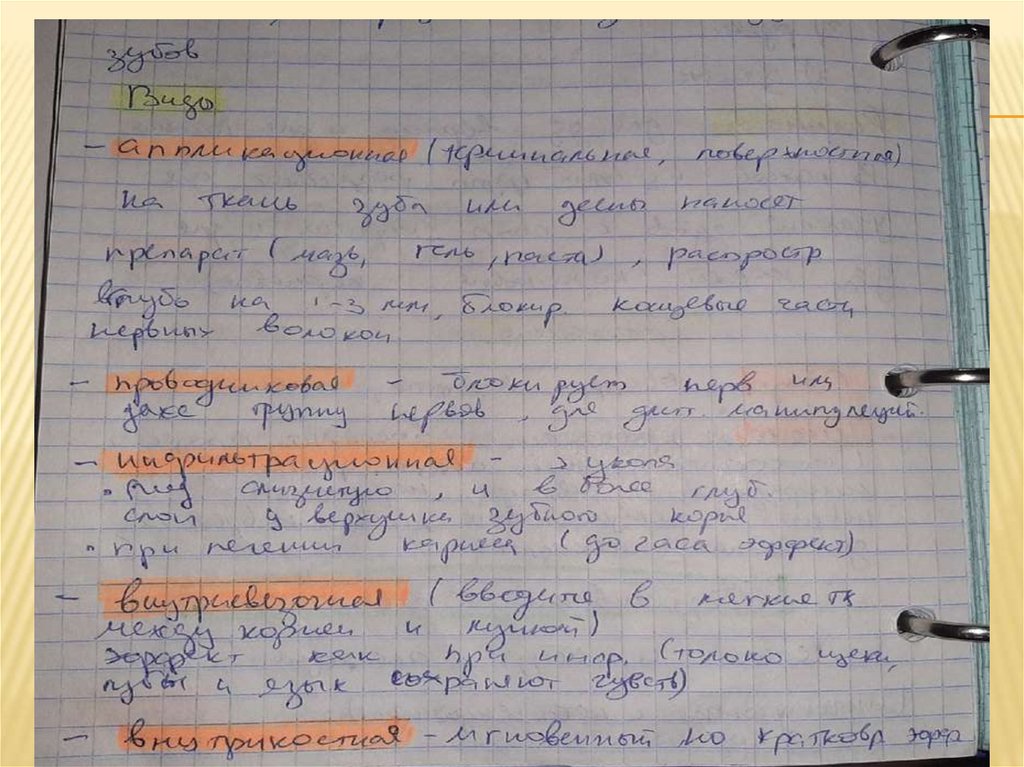 зубов
Виды
- аппликационная (терминальная, поверхностная)
На ткань зуба или десны наносет
препарат (мазь, гель, паста), распростр
вглубь на 1-3 мм, блокир. концевые части
нервных волокон
- проводниковая - блокирует нерв или
даже группу нервов, для длит. манипуляций.
- инфильтрационная - 2 укола
• под слизистую, и в более глуб.
слои у верхушки зубного корня
• при лечении кариеса (до часа эффект)
- внутрисвязочная (вводите в мягкие тк
между костей и лункой)
эффект как при инфр. (только щеки,
губы и язык сохраняют чувств)
- внутрикостная - мгновенный но кратковр эфф